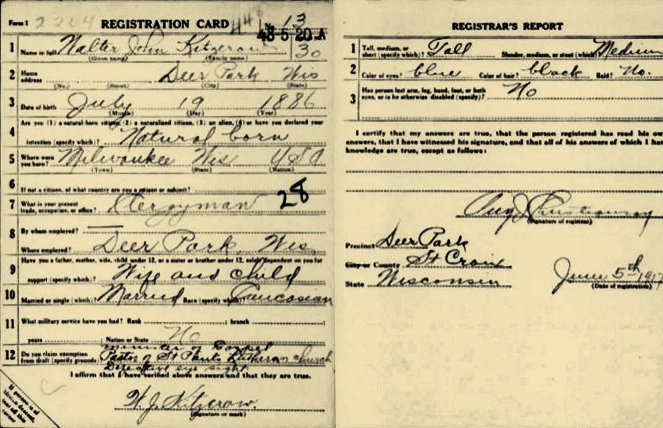 Form 1 2204 REGISTRATION CARD 13
48-5-20 A
1 Name in full Walter John Kitzerow 30
(Given name) (Family name)
2 Home address Deer Park Wis
(No.) (Street) (City) (State)
3 Date of birth July 19 1886
(Month) (Day) (Year)
Are you (1) a natural-born citizen, (2) a naturalized citizen, (3) an alien, (4) or have you declared your
4 intention (specify which)? Natural born
5 Where were you born? Milwaukee Wis USA
(Town) (State) (Nation)
6 If not a citizen, of what country are you a citizen or subject?
7 What is your present trade, occupation, or office? Clergyman 28
8 By whom employed? —
Where employed? Deer Park, Wis.
Have you a father, mother, wife, child under 12, or a sister or brother under 12, solely dependent on you for
9 support (specify which)? Wife and child
10 Married or single (which)? Married Race (specify which)? Caucasian
11 What military service have you had? Rank ; branch
years ; Nation or State No
Minister of Gospel
12 Do you claim exemption from draft (specify grounds)? Pastor of St Pauls Lutheran church
Defective eye sight
I affirm that I have verified above answers and that they are true.
W. J. Kitzerow.
(Signature or mark)
If person is of African descent, tear off this corner
REGISTRAR'S REPORT
1 Tall, medium, or short (specify which)? Tall Slender, medium, or stout (which)? Medium
2 Color of eyes? blue Color of hair? black Bald? No.
3 Has person lost arm, leg, hand, foot, or both eyes, or is he otherwise disabled (specify)? No
I certify that my answers are true, that the person registered has read his own
answers, that I have witnessed his signature, and that all of his answers of which I have
knowledge are true, except as follows:
(Signature of registrar)
Precinct Deer Park
City or County St Croix
State Wisconsin June 5th 1917
(Date of registration)